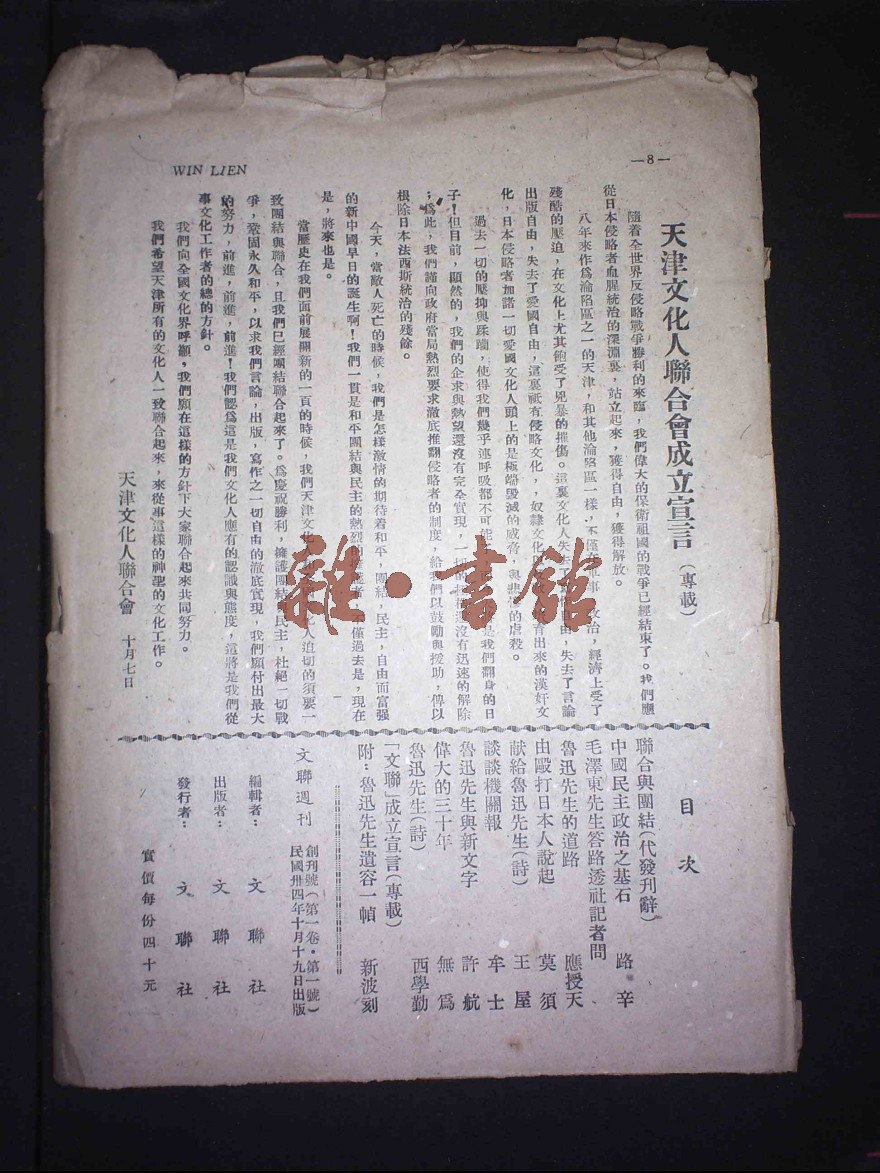 WIN LIEN
—8—
天津文化人聯合會成立宣言(專載)
隨着全世界反侵略戰爭勝利的來臨,我們偉大的保衛祖國的戰爭已經結束了。我們應
從日本侵略者血腥統治的深淵裏,站立起來,獲得自由,獲得解放。
八年來作爲淪陷區之一的天津,和其他淪陷區一樣,不僅在軍事,政治,經濟上受了
殘酷的壓迫,在文化上尤其飽受了兇暴的摧傷。這裏文化人失去了 自由,失去了言論
出版自由,失去了愛國自由,這裏祇有侵略文化,,奴隸文化 育出來的漢奸文
化,日本侵略者加諸一切愛國文化人頭上的是極端毀滅的威脅,與悲慘的虐殺。
過去一切的壓抑與蹂躪,使得我們幾乎連呼吸都不可能 是我們翻身的日
子!但目前,顯然的,我們的企求與熱望還沒有完全實現,一切的 還沒有迅速的解除
;爲此,我們謹向政府當局熱烈要求澈底推翻侵略者的制度,給我們以鼓勵與援助,俾以
根除日本法西斯統治的殘餘。
今天,當敵人死亡的時候,我們是怎樣激情的期待着和平,團結,民主,自由而富强
的新中國早日的誕生啊!我們一貫是和平團結與民主的熱烈的 護者,不僅過去是,現在
是,將來也是。
當歷史在我們面前展開新的一頁的時候,我們天津文化 人迫切的須要一
致團結與聯合,且我們已經團結聯合起來了。爲慶祝勝利,擁護團結 民主,杜絕一切戰
爭,鞏固永久和平,以求我們言論,出版,寫作之一切自由的澈底實現,我們願付出最大
的努力,前進,前進,前進!我們認爲這是我們文化人應有的認識與態度,這將是我們從
事文化工作者的總的方針。
我們向全國文化界呼籲,我們願在這樣的方針下大家聯合起來共同努力。
我們希望天津所有的文化人一致聯合起來,來從事這樣的神聖的文化工作。
天津文化人聯合會 十月七日
目次
聯合與團結(代發刊辭)
中國民主政治之基石 路辛
毛澤東先生答路透社記者問
魯迅先生的道路 應授天
由毆打日本人說起 莫須
献給魯迅先生(詩) 王屋
談談機關報 牟士
魯迅先生與新文字 許航
偉大的三十年 無爲
魯迅先生(詩) 西學勤
「文聯」成立宣言(專載)
附:魯迅先生遺容一幀 新波刻
文聯週刊 創刊號(第一卷·第一號)
民國卅四年十月十九日出版
編輯者: 文聯社
出版者: 文聯社
發行者: 文聯社
實價每份四十元
雜·書館